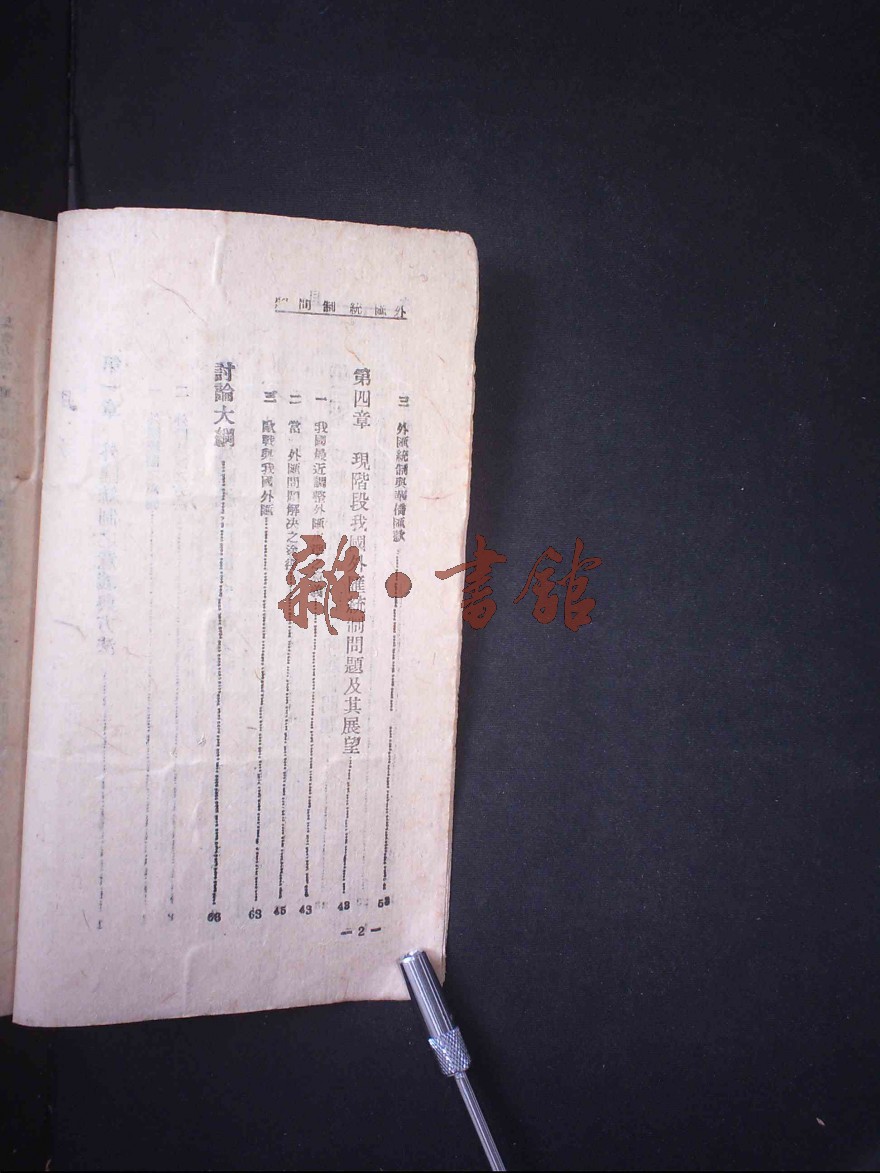 外匯統制問
三 外匯統制與華僑匯款 53
第四章 現階段我國外匯統制問題及其展望 43
一 我國最近調整外匯 43
二 當 外匯問題解決之途徑 45
三 歐戰與我國外匯 63
討論大綱 66
—2—
雜·書館